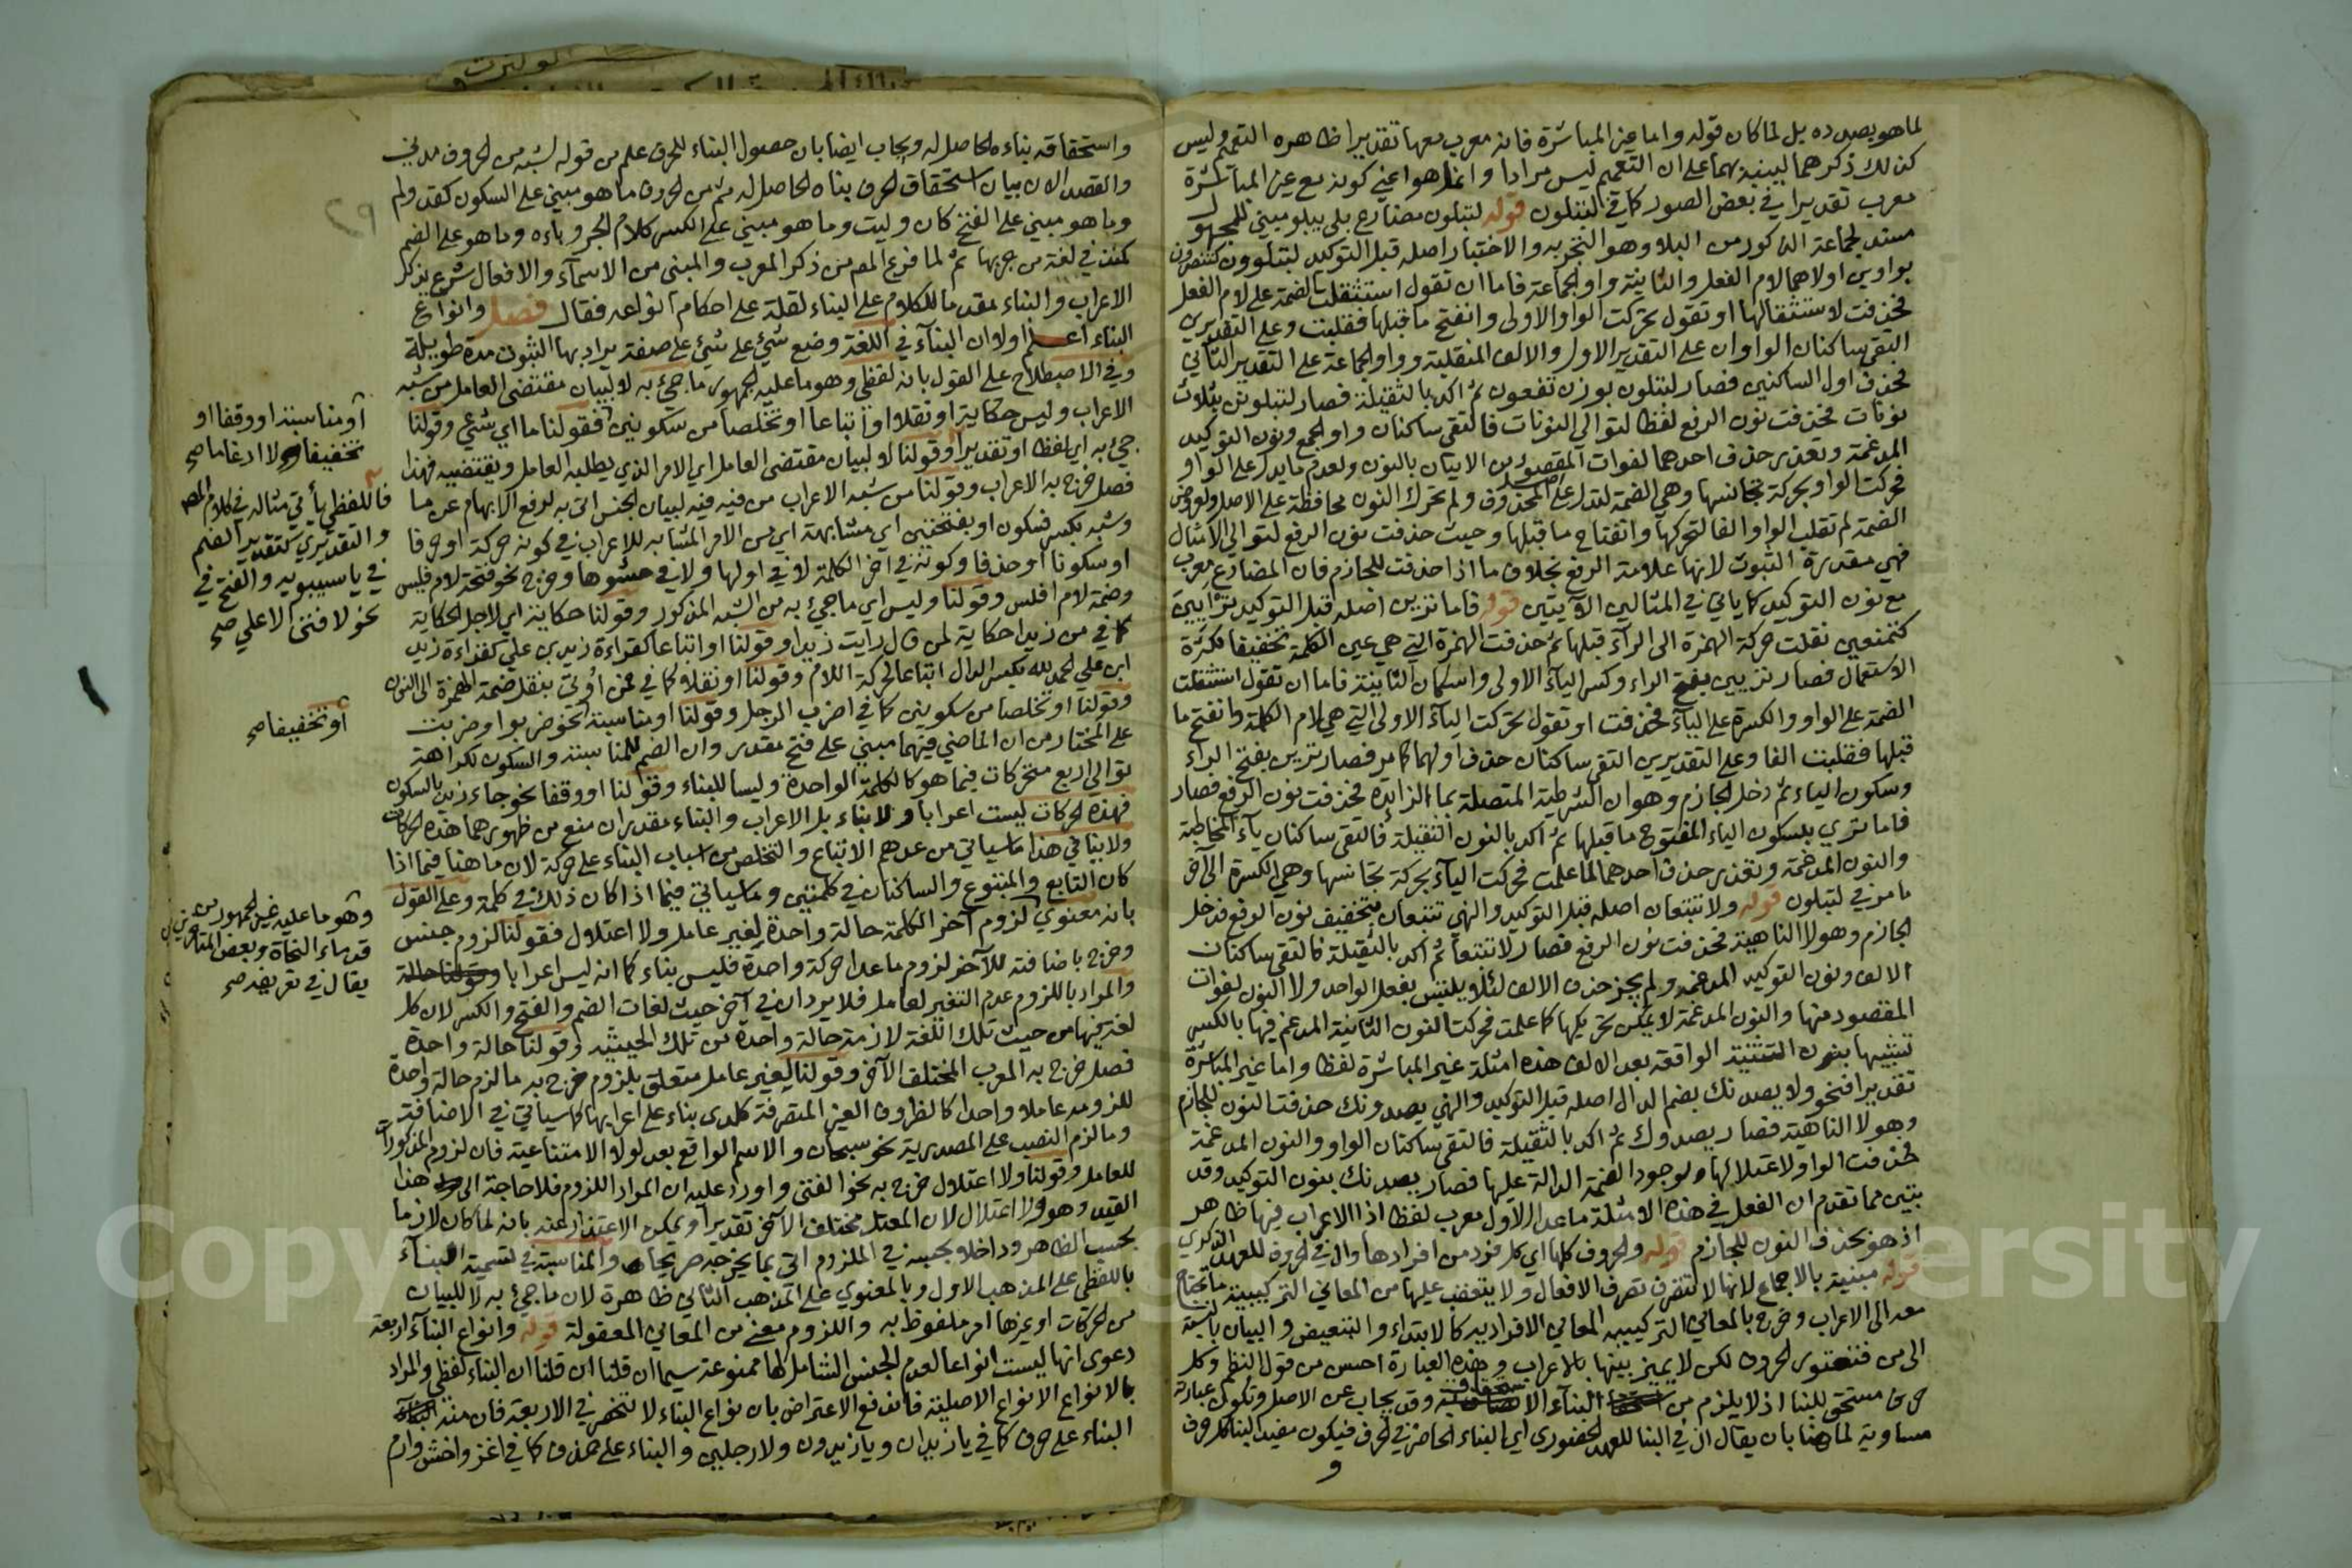 لما هو بصدده بل لما كان قوله واما غير المباشرة فانه معرب معها تقديرا ظاهره التعميم وليس
كذلك ذكرهما لينبه بهما على ان التعميم ليس مرادا وانما هو اعني كونه مع غير المباشرة
معرب تقديرا في بعض الصور كما في لتبلون قوله لتبلون مضارع بلى يبلو مبني للمجهول
مسند لجماعة الذكور من البلاء وهو التجربه والاختبار اصله قبل التوكيد لتبلوون كتنصرون
بواوين اولاهما لام الفعل والثانية واو الجماعة فاما ان تقول استثقلت الضمة على لام الفعل
فحذفت لاستثقالها او تقول تحركت الواو الاولى وانفتح ما قبلها فقلبت وعلى التقديرين
التقى ساكنان الواوان على التقدير الاول والالف المنقلبة وواو الجماعة على التقدير الثاني
فحذف اول الساكنين فصار لتبلون بوزن تفعون ثم اكد بالثقيلة فصار لتبلونن بثلاث
نونات فحذفت نون الرفع لفظا لتوالي النونات فالتقى ساكنان واو الجمع ونون التوكيد
المدغمة وتعذر حذف احدهما لفوات المقصود من الاتيان بالنون ولعدم ما يدل على الواو
فحركت الواو بحركة تجانسها وهي الضمة لتدل على المحذوف ولم تحرك النون محافظة على الاصل ولعروض
الضمة لم تقلب الواو الفا لتحركها وانفتاح ما قبلها وحيث حذفت نون الرفع لتوالي الامثال
فهي مقدرة الثبوت لانها علامة الرفع بخلاف ما اذا حذفت للجازم فان المضارع معرب
مع نون التوكيد كما ياتي في المثالين الآتيين قوله فاما ترين اصله قبل التوكيد ترأيين
كتمنعين نقلت حركة الهمزة الى الراء قبلها ثم حذفت الهمزة التي هي عين الكلمة تخفيفا لكثرة
الاستعمال فصار تريين بفتح الراء وكسر الياء الاولى واسكان الثانية فاما ان تقول استثقلت
الضمة على الواو والكسرة على الياء فحذفت او تقول تحركت الياء الاولى التي هي لام الكلمة وانفتح ما
قبلها فقلبت الفا وعلى التقديرين التقى ساكنان حذف اولهما كما مر فصار ترين بفتح الراء
وسكون الياء ثم دخل الجازم وهو ان الشرطية المتصلة بما الزايدة فحذفت نون الرفع فصار
فاما تري بسكون الياء المفتوح ما قبلها ثم اكد بالنون الثقيلة فالتقى ساكنان ياء المخاطبة
والنون المدغمة وتعذر حذف احدهما لما علمت فحركت الياء بحركة تجانسها وهي الكسرة الى اخر
ما مر في لتبلون قوله ولا تتبعان اصله قبل التوكيد والنهي تتبعان بتخفيف نون الرفع فدخل
الجازم وهو لا الناهية فحذفت نون الرفع فصار لا تتبعا ثم اكد بالثقيلة فالتقى ساكنان
الالف ونون التوكيد المدغمه ولم يجز حذف الالف لئلا يلتبس بفعل الواحد ولا النون لفوات
المقصود منها والنون المدغمة لا يمكن تحريكها كما علمت فحركت النون الثانية المدغم فيها بالكسر
تشبيها بنون التثنية الواقعة بعد الالف هذه امثلة غير المباشرة لفظا واما غير المباشرة
تقديرا فنحو ولا يصدنك بضم الدال اصله قبل التوكيد والنهي يصدونك حذفت النون للجازم
وهو لا الناهية فصار يصدوك ثم اكد بالثقيلة فالتقى ساكنان الواو والنون المدغمة
فحذفت الواو لاعتلالها ولوجود الضمة الدالة عليها فصار يصدنك بنون التوكيد وقد
تبين مما تقدم ان الفعل في هذه الامثلة ما عدا الاول معرب لفظا اذا الاعراب فيها ظاهر
اذ هو بحذف النون للجازم قوله والحروف كلها اي كل فرد من افرادها وال في الحروف للعهد الذكري
قوله مبنية بالاجماع لانها لا تتصرف تصرف الافعال ولا يتعقب عليها من المعاني التركيبية ما تحتاج
معه الى الاعراب وخرج بالمعاني التركيبيه المعاني الافراديه كالابتداء والتبعيض والبيان بالنسبة
الى من فتعتور الحروف لكن لا يميز بينها بالاعراب وهذه العبارة احسن من قول النظم وكل
حرف مستحق للبنا اذ لا يلزم من البناء وقد يجاب عن الاصل وتكون عبارته
مساوية لما هنا بان يقال ال في البنا للعهد الحضوري اي البناء الحاضر في الحرف فيكون مفيد البنا كل حرف
و
واستحقاقه بناءه الحاصل له ويجاب ايضا بان حصول البناء للحرف علم من قوله لشبه من الحروف مدني
والقصد الان بيان استحقاق الحرف بناه الحاصل له ثم من الحروف ما هو مبني على السكون كقد ولم
وما هو مبني على الفتح كان وليت وما هو مبني على الكسر كلام الجر وباءه وما هو على الضم
كمنذ في لغة من جر بها ثم لما فرغ المص من ذكر المعرب والمبني من الاسماء والافعال شرع يذكر
الاعراب والبناء مقدما للكلام على البناء لقلة على احكام انواعه فقال فصل وانواع
البناء اعلم اولا ان البناء في اللغة وضع شيء على شيء على صفة يراد بها الثبوت مدة طويلة
وفي الاصطلاح على القول بانه لفظي وهو ما عليه الجمهور ما جيء به لا لبيان مقتضى العامل من شبه
الاعراب وليس حكاية او نقلا او اتباعا او تخلصا من سكونين فقولنا ما اي شيء وقولنا
جيء به اي لفظا او تقديرا وقولنا لا لبيان مقتضى العامل اي الامر الذي يطلبه العامل ويقتضيه فهذا
فصل خرج به الاعراب وقولنا من شبه الاعراب من فيه لبيان الجنس اتى به لرفع الابهام عن ما
وشبه بكسر فسكون او بفتحتين اي مشابهة اي من الامر المشابه للاعراب في كونه حركة او حرفا
او سكونا او حذفا وكونه في اخر الكلمة لا في اولها ولا في حشوها وخرج نحو فتحة لام فلس
وضمة لام افلس وقولنا وليس اي ما جيء به من الشبه المذكور وقولنا حكاية اي لاجل الحكاية
كما في من زيدا حكاية لمن قال رايت زيدا وقولنا او اتباعا كقراءة زيد بن علي كقراءة زيد
ابن علي الحمد لله بكسر الدال اتباعا لحركة اللام وقولنا او نقلا كما في فمن اوتي بنقل ضمة الهمزة الى النون
وقولنا او تخلصا من سكونين كما في اضرب الرجل وقولنا او مناسبة نحو ضربوا وضربت
على المختار من ان الماضي فيهما مبني على فتح مقدر وان الضم للمناسبة والسكون لكراهة
توالي اربع متحركات فيما هو كالكلمة الواحدة وليسا للبناء وقولنا او وقفا نحو جاء زيد بالسكون
فهذه الحركات ليست اعرابا ولا بناء بل الاعراب والبناء مقدران منع من ظهورهما هذه الحركات
ولا ينافي هذا ما سياتي من عدهم الاتباع والتخلص من اسباب البناء على حركة لان ما هنا فيما اذا
كان التابع والمتبوع والساكنان في كلمتين وما سياتي فيما اذا كان ذلك في كلمة وعلى القول
بانه معنوي لزوم آخر الكلمة حالة واحدة لغير عامل ولا اعتلال فقولنا لزوم جنس
وخرج باضافته للآخر لزوم ما عدا حركة واحدة فليس بناء كما انه ليس اعرابا وقولنا حالة
والمراد باللزوم عدم التغير لعامل فلا يرد ان في آخر حيث لغات الضم والفتح والكسر لان كل
لغة منها من حيث تلك اللغة لازمة حالة واحدة من تلك الحيثيه وقولنا حالة واحدة
فصل خرج به المعرب المختلف الآخر وقولنا لغير عامل متعلق بلزوم خرج به ما لزم حالة واحدة
للزومه عاملا واحدا كالظروف الغير المتصرفة كلدى بناء على اعرابها كما سياتي في الاضافة
وما لزم النصب على المصدرية نحو سبحان والاسم الواقع بعد لولا الامتناعية فان لزوم المذكورات
للعامل وقولنا ولا اعتلال خرج به نحو الفتى واورد عليه ان المراد اللزوم فلا حاجة الى هذا
القيد وهو ولا اعتلال لان المعتل مختلف الآخر تقديرا ويمكن الاعتذار عنه بانه لما كان لازما
بحسب الظاهر وداخلا بحسبه في الملزوم اتى بما يخرجه صريحا والمناسبة في تسمية البناء
باللفظي على المذهب الاول وبالمعنوي على المذهب الثاني ظاهرة لان ما جيء به لا للبيان
من الحركات او غيرها امر ملفوظ به واللزوم معنى من المعاني المعقولة قوله وانواع البناء اربعة
دعوى انها ليست انواعا لعدم الجنس الشامل لها ممنوعة سيما ان قلنا ان البناء لفظي والمراد
بالانواع الانواع الاصلية فاندفع الاعتراض بان نواع البناء لا تنحصر في الاربعة فان منه
البناء على حرف كما في يا زيدان ويا زيدون ولا رجلين والبناء على حذف كما في اغز واخش وارم
أو مناسبة او وقفا او
تخفيفا ولا ادغاما صح
فاللفظي يأتي مثاله في كلام المص
والتقديري كتقدير الضم
في يا سيبويه والفتح في
نحو لا فتى الا علي صح
أو تخفيفا صح
وهو ما عليه غير الجمهور من
قدماء النحاة وبعض المتاخرين
يقال في تعريفه صح
٢٩